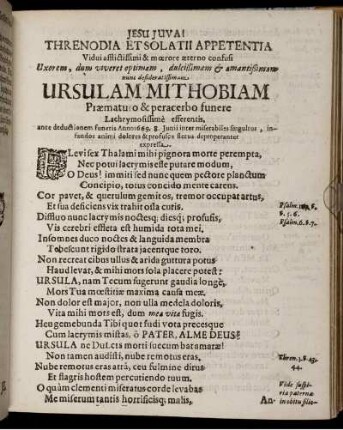 JESU JUVA!
THRENODIA ET SOLATII APPETENTIA
Vidui afflictissimi & mœrore æterno confusi
Uxorem, dum viveret optimam, dulcissimam & amantissimam
nunc desideratissimam
URSULAM MITHOBIAM
Præmaturo & peracerbo funere
Lachrymosissimè efferentis,
ante deductionem funeris Anno 1669. 8. Junii inter miserabiles singultus, in-
fandos animi dolores & profusos fletus deproperanter
expressa.
FLevi sex Thalami mihi pignora morte perempta,
Nec potui lacrymis este putare modum,
O Deus! immiti sed nunc quem pectore planctum
Concipio, totus concido mente carens.
Cor pavet, & querulum gemitos, tremor occupat artus,
Et sua deficiens vix trahit ossa cutis.
Diffluo nunc lacrymis noctesq; diesq; profusis,
Vis cerebri effleta est humida tota mei,
Insomnes duco noctes & languida membra
Tobescunt rigido strata jacentque toro.
Non recreat cibus ullus & arida guttura potus
Haud levat, & mihi mors sola placere potest:
URSULA, nam Tecum fugerunt gaudia longè,
Mors Tua mœstitiæ maxima causa meæ.
Non dolor est major, non ulla medela doloris,
Vita mihi mors est, dum mea vita fugis.
Heu gemebunda Tibi quot fudi vota precesque
Cum lacrymis mistas, ô PATER, ALME DEUS!
URSULA ne Dulcis morti succumbat amaræ!
Non tamen audisti, nube remotus eras,
Nube remotus eras atrâ, ceu fulmine dirus
Et flagris hostem percutiendo tuum.
O quàm clementi miseratus corde levabas
Me miserum tantis horrificisq; malis,
An-
Psalm.
8. 5. 6.
Psalm. 6. 8. 7.
Thren. 3. 8. 43.
44.
Vide suspi-
ria paterna
in obitu filio-